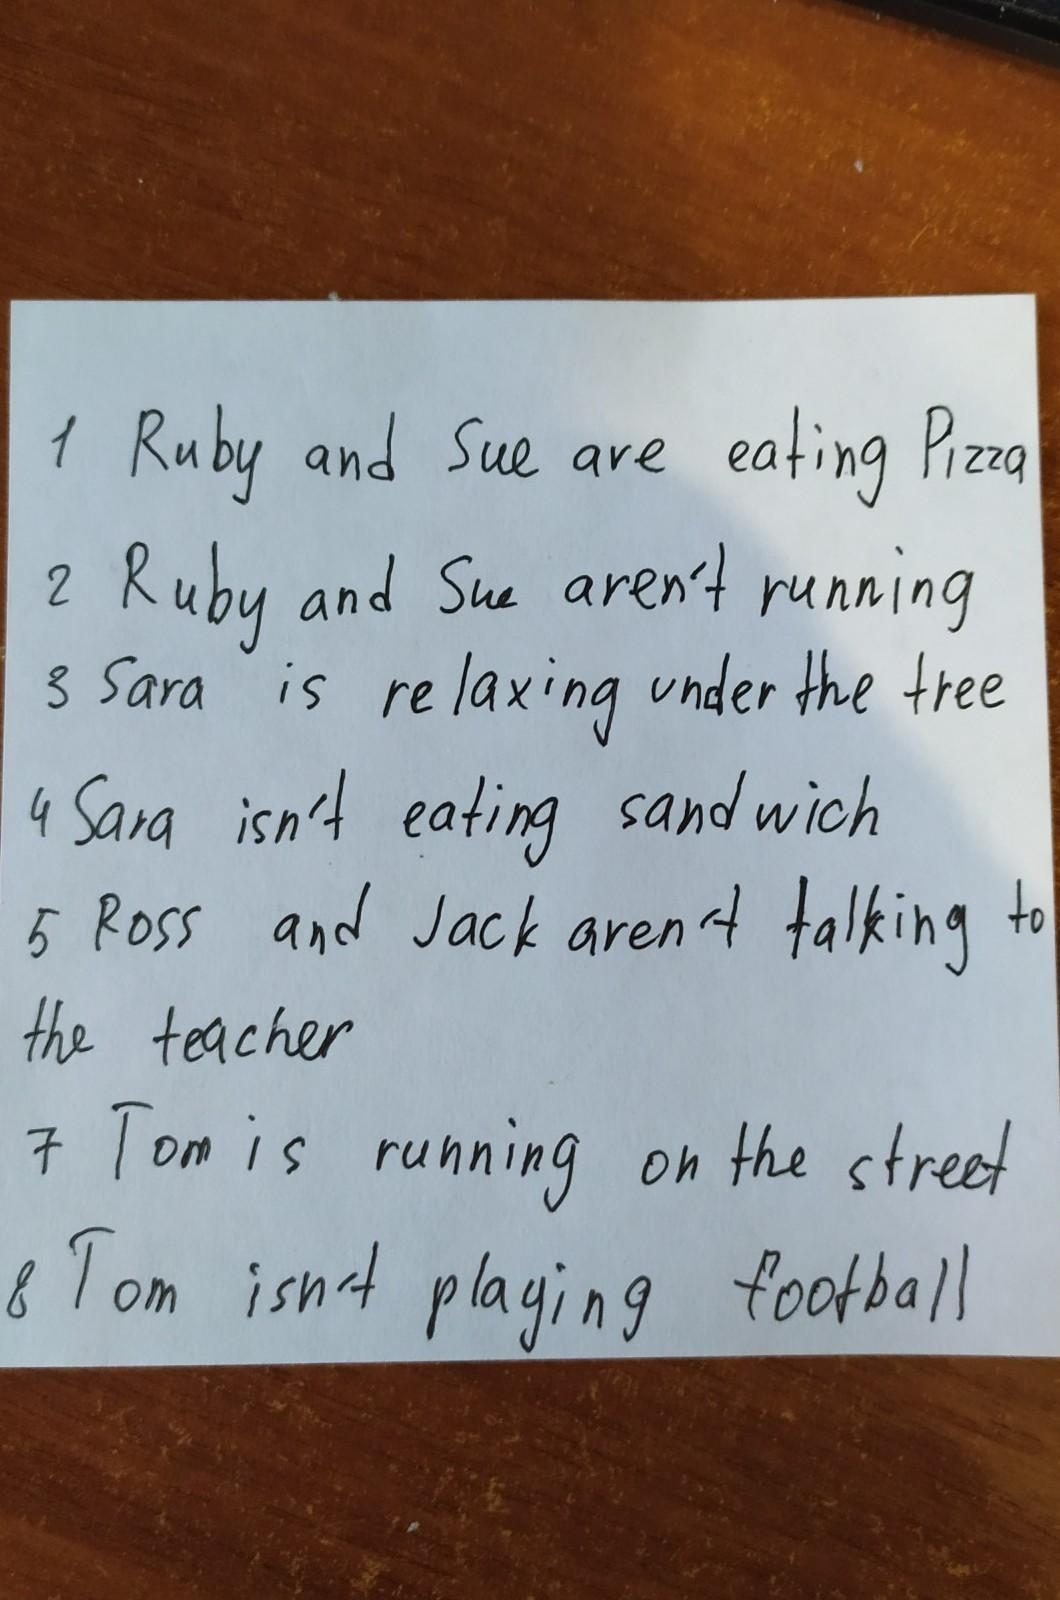 1 Ruby and Sue are eating Pizza
2 Ruby and Sue aren't running
3 Sara is relaxing under the tree
4 Sara isn't eating sandwich
5 Ross and Jack aren't talking to
the teacher
7 Tom is running on the street
8 Tom isn't playing football